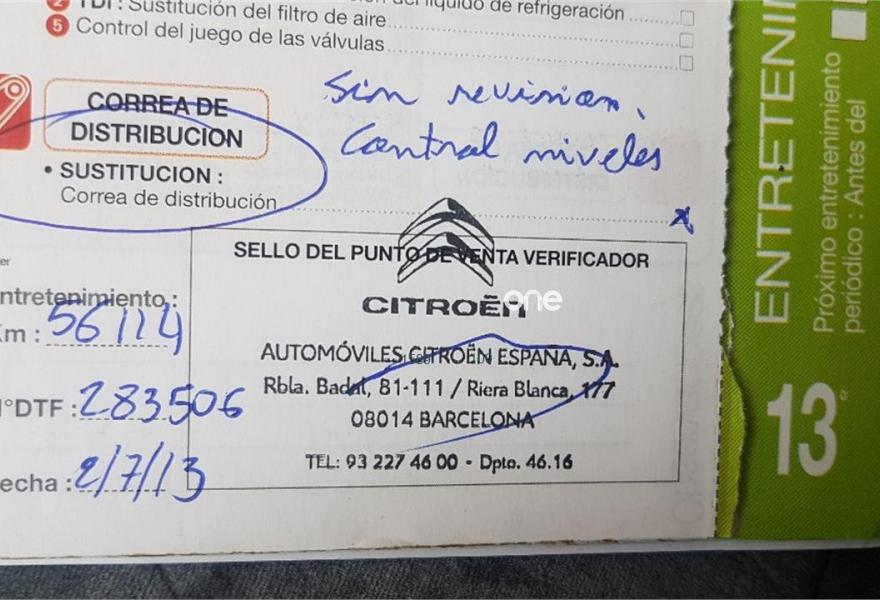 TDI : Sustitución del filtro de aire
líquido de refrigeración
5 Control del juego de las válvulas
Sin revision.
Control niveles
CORREA DE
DISTRIBUCION
• SUSTITUCION :
Correa de distribución
SELLO DEL PUNTO DE VENTA VERIFICADOR
CITROËN
one
AUTOMÓVILES CITROËN ESPAÑA, S.A.
Rbla. Badal, 81-111 / Riera Blanca, 177
08014 BARCELONA
TEL: 93 227 46 00 - Dpto. 46.16
ntretenimiento :
Km : 56114
N°DTF : 283506
echa : 2/7/13
ENTRETENI
Próximo entretenimiento
periódico : Antes del
13